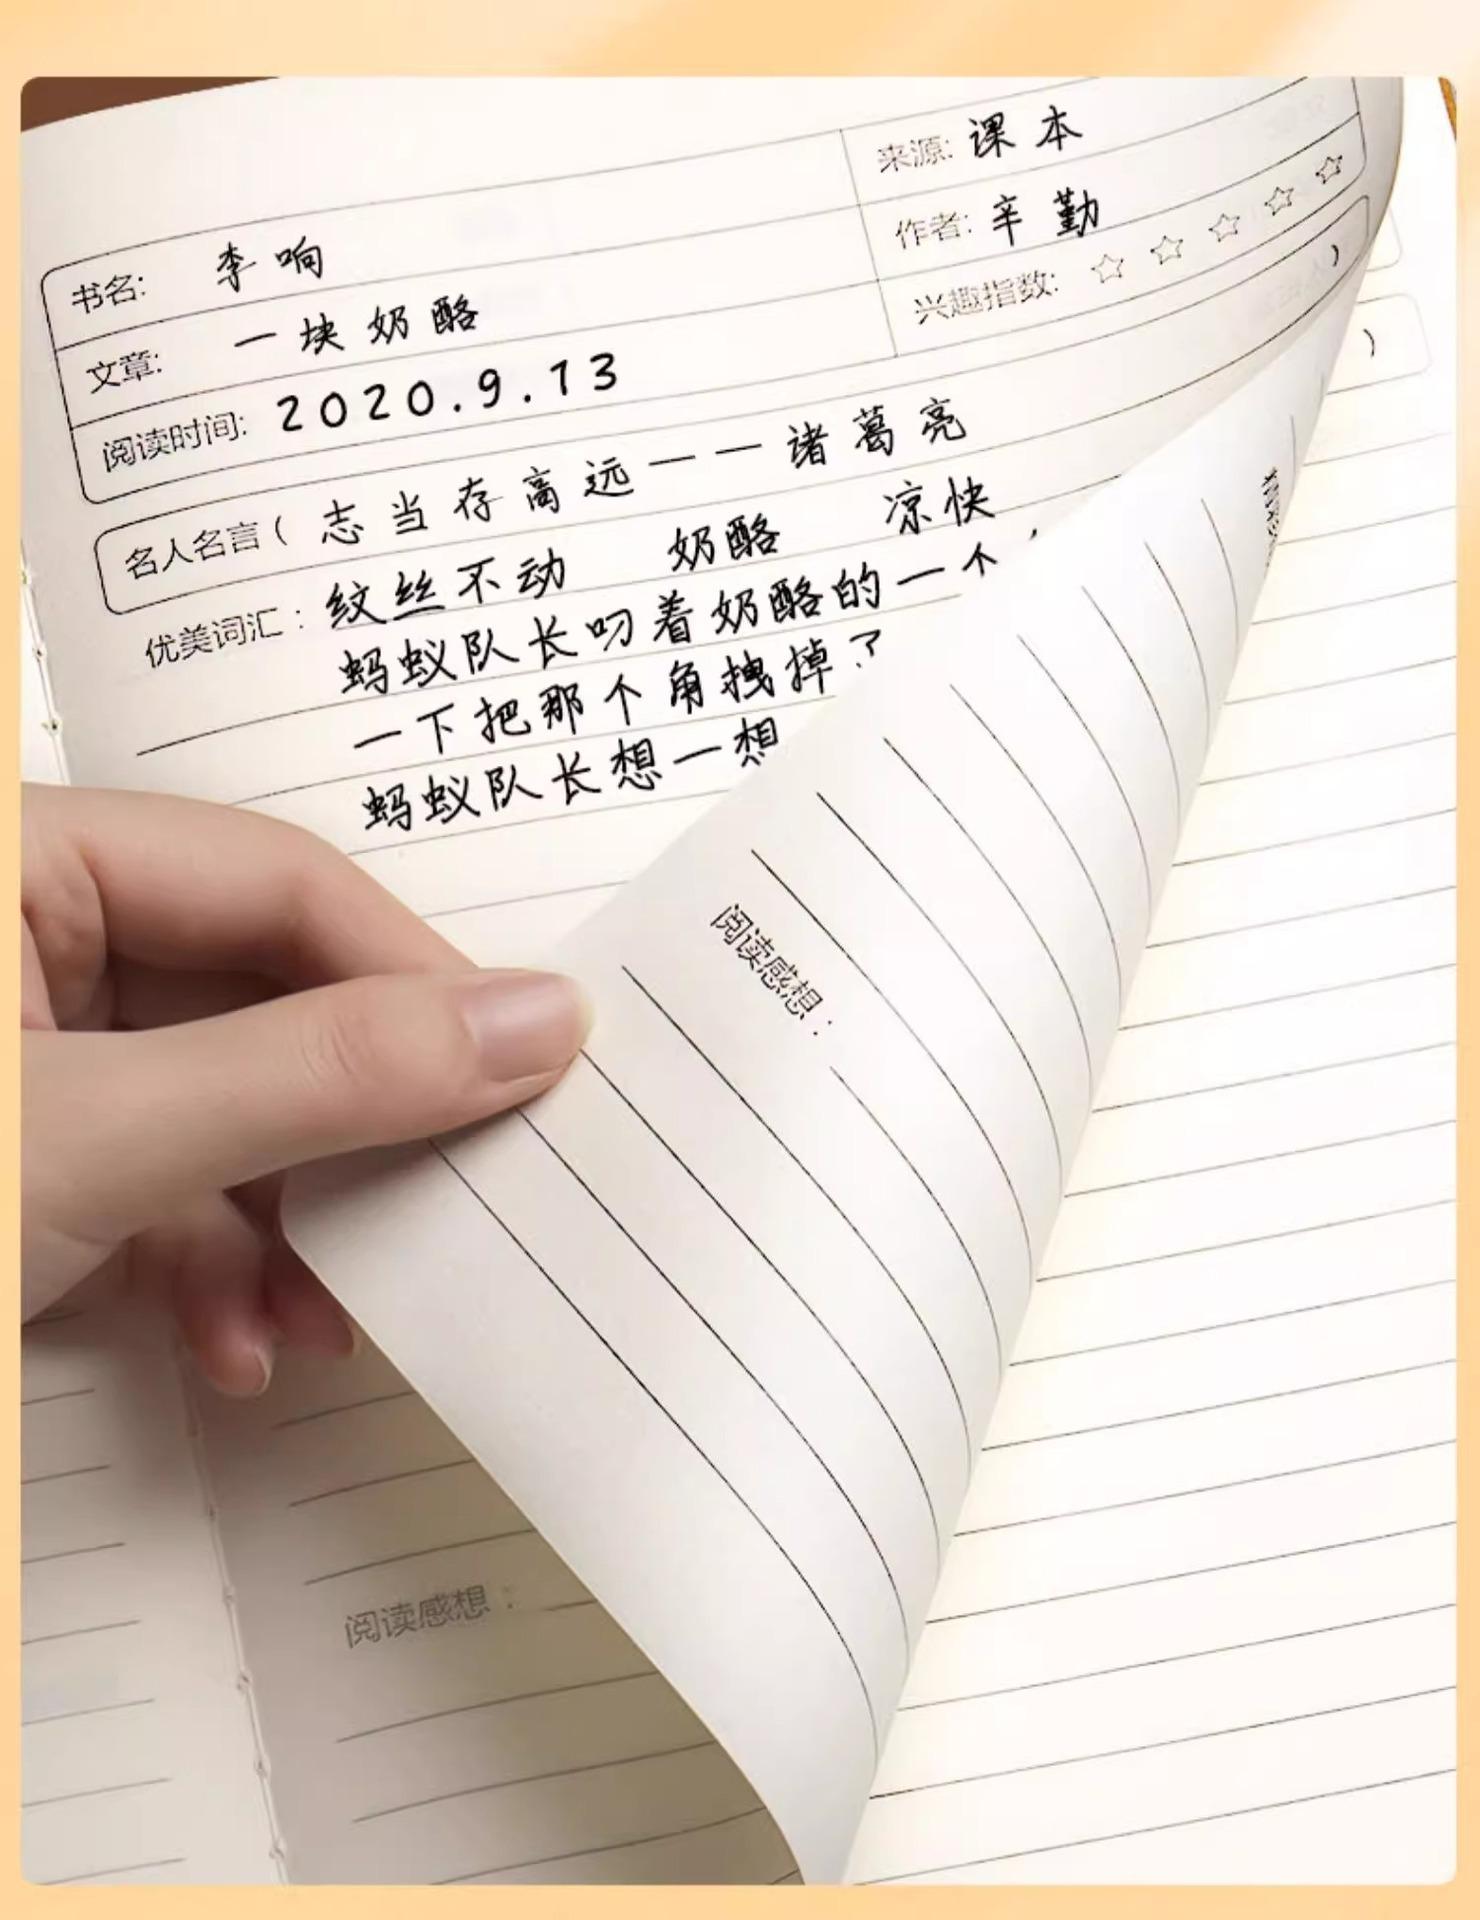 书名: 李响
来源: 课本
文章: 一块奶酪
作者: 辛勤
阅读时间: 2020.9.13
兴趣指数: ☆ ☆ ☆ ☆ ☆
名人名言( 志当存高远——诸葛亮 )
优美词汇: 纹丝不动 奶酪 凉快
蚂蚁队长叼着奶酪的一个
一下把那个角拽掉
蚂蚁队长想一想
)
阅读感想:
阅读感想: